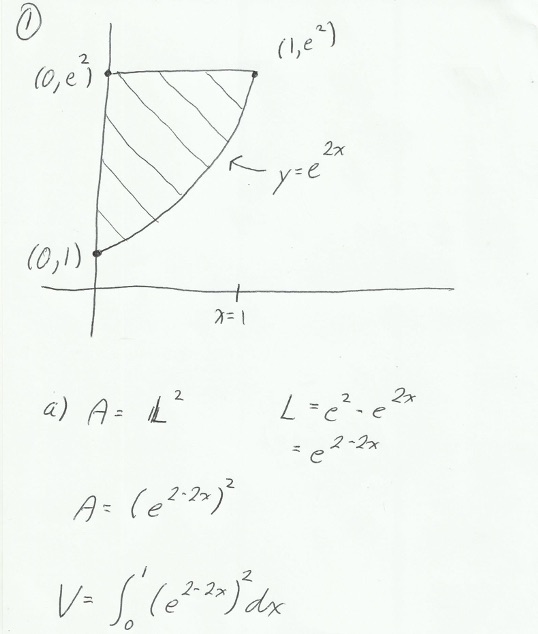 ①
(0,e²) (1,e²)
y=e^{2x}
(0,1)
x=1
a) A= L² L=e²-e^{2x}
=e^{2-2x}
A=(e^{2-2x})²
V=∫₀¹(e^{2-2x})²dx